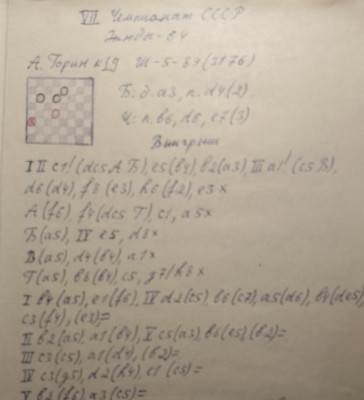 VII Чемпионат СССР
Этюды-64
А. Горин к 19 Ш-5-89 (3176)
Б: д. а3, п. d4 (2)
Ч: п. b6, d6, e7 (3)
Выигрыш
I II c1! (dc5 А Б), e5 (b4), b2 (a3), III a1! (c5 В),
d6 (d4), f8 (e3), h6 (f2), e3 x
А (f6), f4 (dc5 Г), c1, a5 x
Б (a5), IV e5, d8 x
В (a5), d4 (b4), a1 x
Г (a5), b8 (b4), c5, g7/h8 x
I b4 (a5), e1 (f6), IV d2 (c5), b6 (c7), a5 (d6), b4 (de5),
c3 (f4), (e3) =
II b2 (a5), a1 (b4), V c5 (a3), b6 (e5), (b2) =
III c3 (c5), a1 (d4), (b2) =
IV c3 (g5), d2 (h4), e1 (c5) =
V b2 (f6), a3 (c5) =